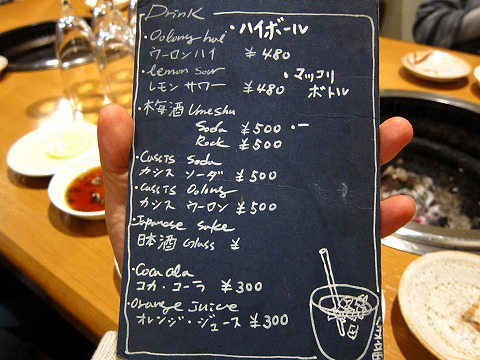 Drink
・ハイボール
・Oolong hai
ウーロンハイ ¥480
・lemon sour
レモン サワー ¥480
・マッコリ
ボトル
・梅酒 Umeshu
Soda ¥500・ー
Rock ¥500
・Cassis Soda
カシス ソーダ ¥500
・Cassis Oolong
カシス ウーロン ¥500
・Japanese sake
日本酒 Glass ¥
・Coca cola
コカ・コーラ ¥300
・Orange juice
オレンジ・ジュース ¥300